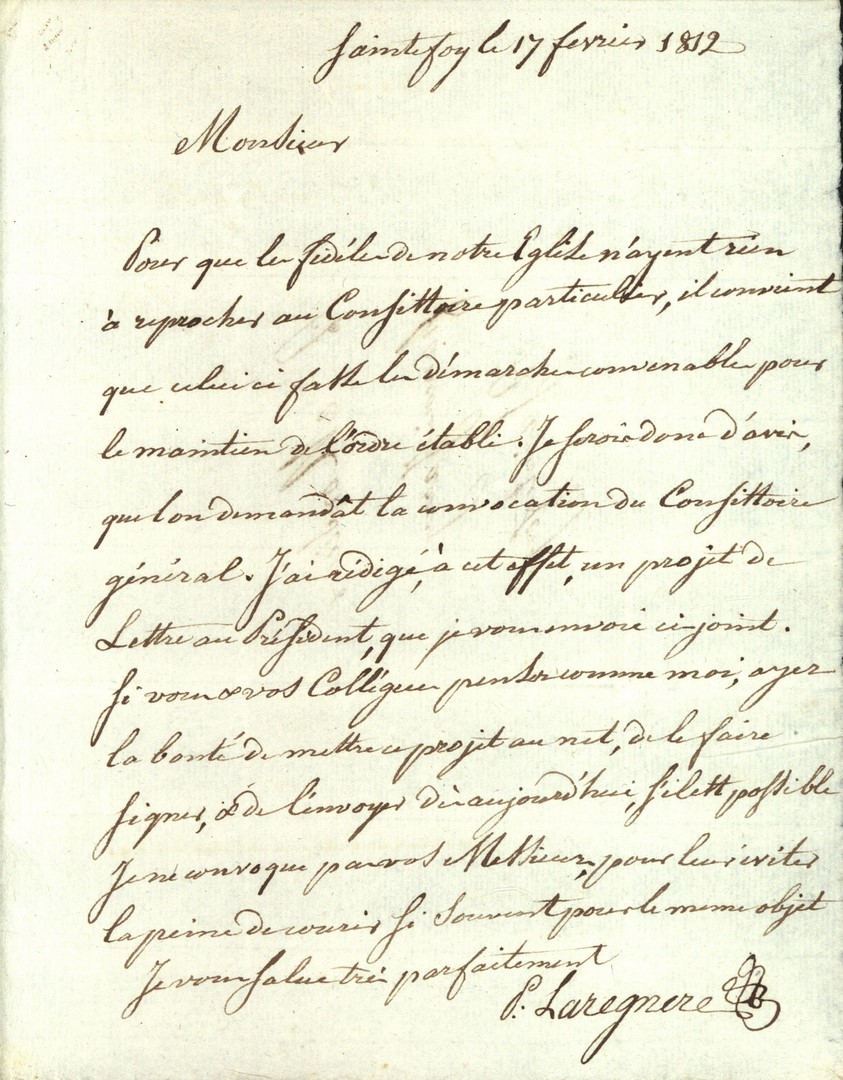 Saintefoy le 17 fevrier 1812
Monsieur
Pour que les fidéles de notre Eglise n'ayent rien
à reprocher au Consistoire particulier, il convient
que celui ci fasse les démarches convenables pour
le maintien de l'ordre établi. Je serois donc d'avis,
que l'on demandât la convocation du Consistoire
général. J'ai rédigé, à cet effet, un projet de
Lettre au Président, que je vous envoie ci-joint.
Si vous & vos Collégues pensez comme moi, ayez
la bonté de mettre ce projet au net, de le faire
signer, & de l'envoyer dès aujourd'hui, s'il est possible
Je ne convoque pas vos Messieurs, pour leur éviter
la peine de courir si souvent pour le meme objet
Je vous salue très parfaitement
P. Laregnere